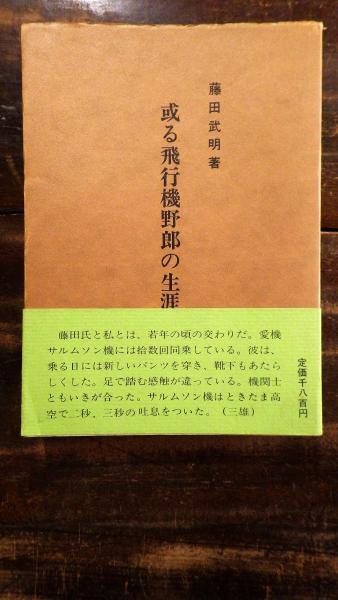 藤田武明著
或る飛行機野郎の生涯
藤田氏と私とは、若年の頃の交わりだ。愛機
サルムソン機には拾数回同乗している。彼は、
乗る日には新しいパンツを穿き、靴下もあたら
しくした。足で踏む感触が違っている。機関士
ともいきが合った。サルムソン機はときたま高
空で二秒、三秒の吐息をついた。（三雄）
定価千八百円